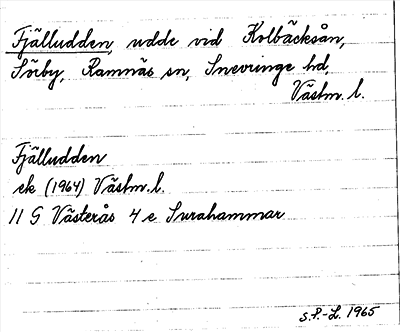 Fjälludden, udde vid Kolbäcksån,
Sörby, Ramnäs sn, Snevringe hd,
Västm. l.
Fjälludden
ek (1964) Västm. l.
11 G Västerås 4 e Surahammar
S.P.-L. 1965